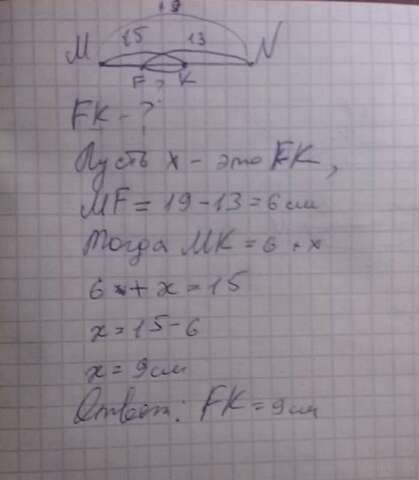 19
M 15 13 N
F ? K
FK - ?
Пусть x - это FK,
MF = 19 - 13 = 6 см
Тогда MK = 6 + x
6 + x = 15
x = 15 - 6
x = 9 см
Ответ: FK = 9 см